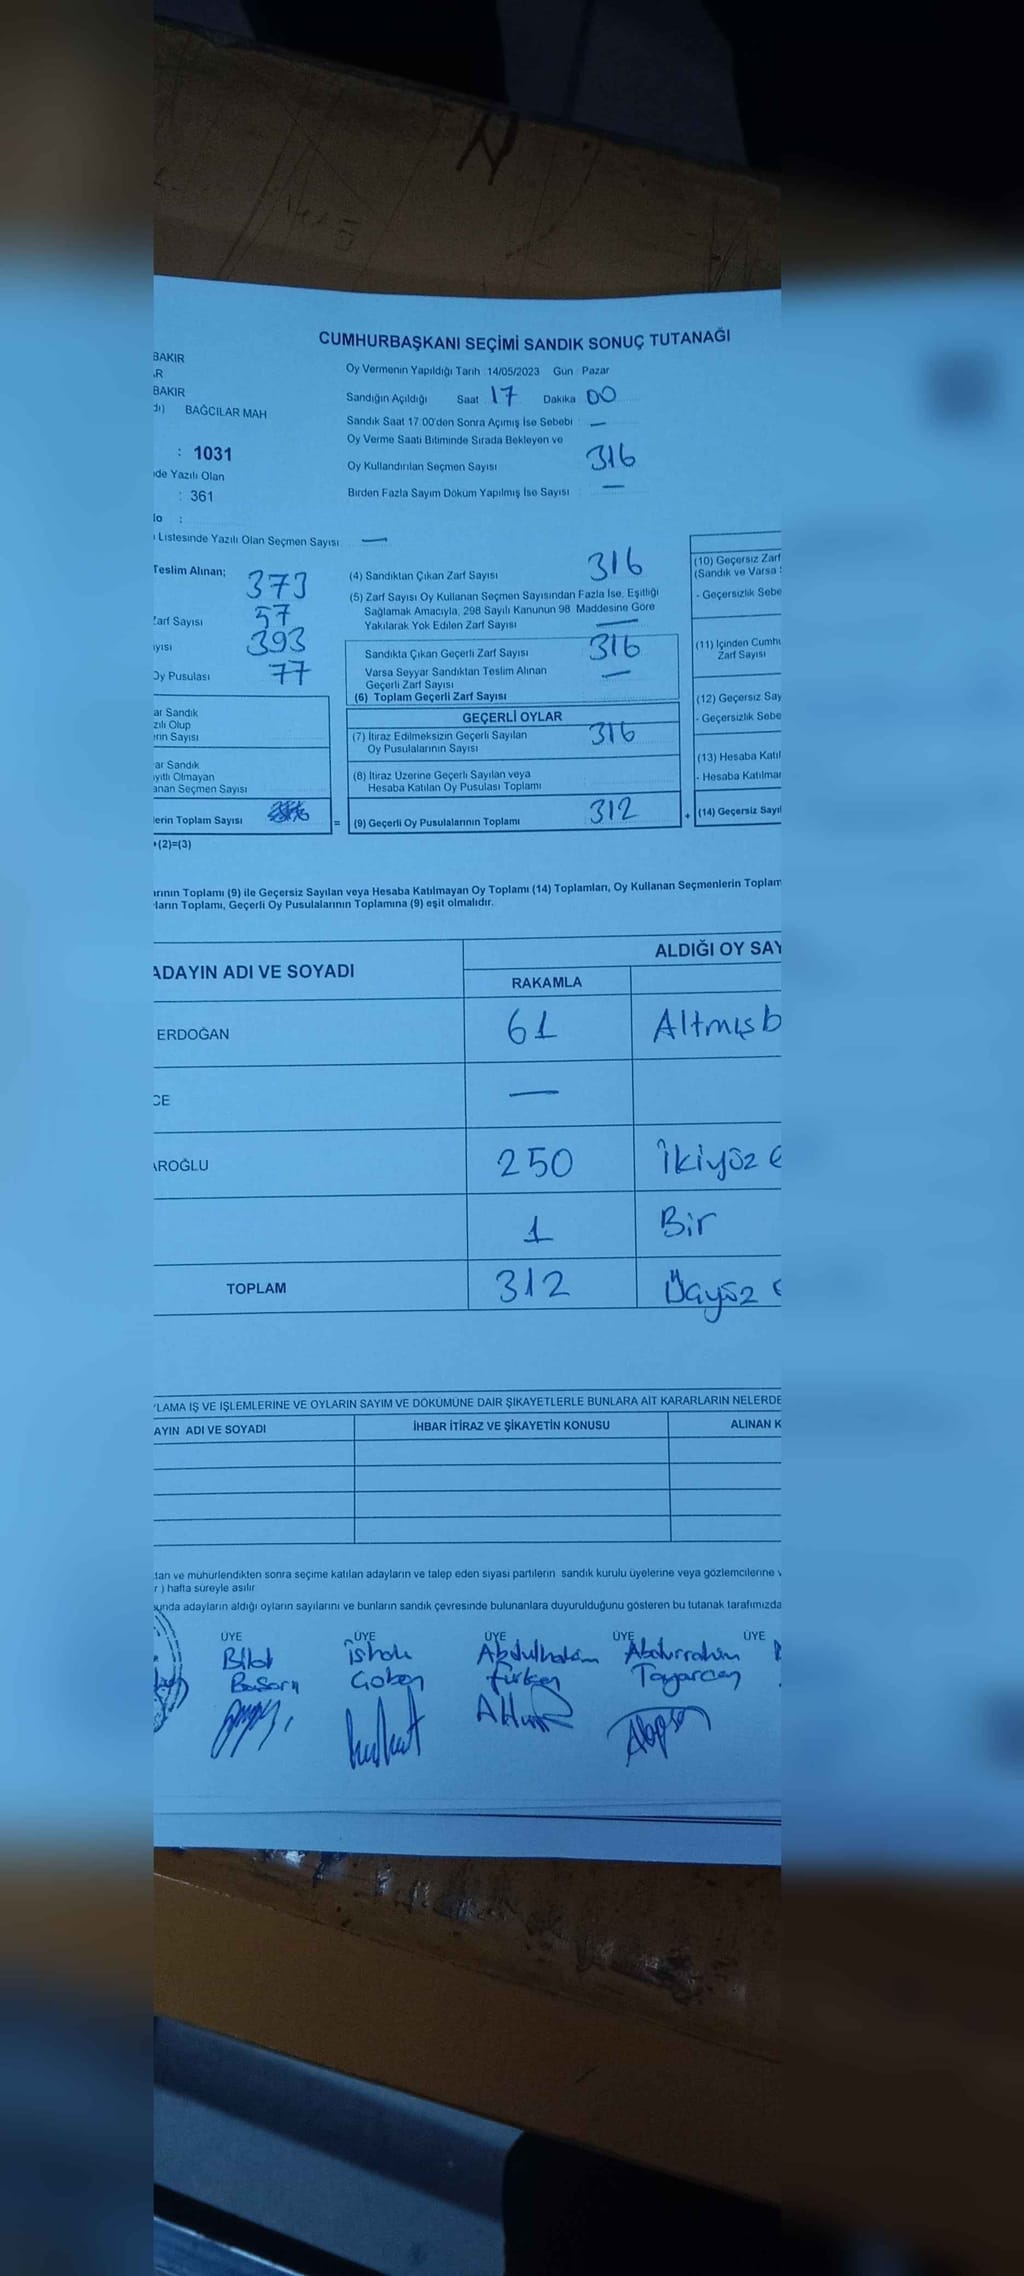 CUMHURBAŞKANI SEÇİMİ SANDIK SONUÇ TUTANAĞI
BAKIR
R
BAKIR
BAĞCILAR MAH
: 1031
de Yazılı Olan
: 361
No :
Listesinde Yazılı Olan Seçmen Sayısı —
Oy Vermenin Yapıldığı Tarih 14/05/2023 Gün Pazar
Sandığın Açıldığı Saat 17 Dakika 00
Sandık Saat 17.00'den Sonra Açımış İse Sebebi : —
Oy Verme Saati Bitiminde Sırada Bekleyen ve
Oy Kullandırılan Seçmen Sayısı 316
Birden Fazla Sayım Döküm Yapılmış İse Sayısı : —
Teslim Alınan; 373
Zarf Sayısı 57
yısı 393
Oy Pusulası 77
ar Sandık
zılı Olup
erin Sayısı
ar Sandık
yıtlı Olmayan
anan Seçmen Sayısı
lerin Toplam Sayısı
+(2)=(3)
(4) Sandıktan Çıkan Zarf Sayısı 316
(5) Zarf Sayısı Oy Kullanan Seçmen Sayısından Fazla İse, Eşitliği
Sağlamak Amacıyla, 298 Sayılı Kanunun 98 Maddesine Göre
Yakılarak Yok Edilen Zarf Sayısı —
Sandıkta Çıkan Geçerli Zarf Sayısı 316
Varsa Seyyar Sandıktan Teslim Alınan
Geçerli Zarf Sayısı —
(6) Toplam Geçerli Zarf Sayısı
GEÇERLİ OYLAR
(7) İtiraz Edilmeksizin Geçerli Sayılan
Oy Pusulalarının Sayısı 316
(8) İtiraz Üzerine Geçerli Sayılan veya
Hesaba Katılan Oy Pusulası Toplamı
= (9) Geçerli Oy Pusulalarının Toplamı 312
(10) Geçersiz Zarf
(Sandık ve Varsa
- Geçersizlik Sebe
(11) İçinden Cumhu
Zarf Sayısı
(12) Geçersiz Say
- Geçersizlik Sebe
(13) Hesaba Katıl
- Hesaba Katılmar
+ (14) Geçersiz Sayıl
arının Toplamı (9) ile Geçersiz Sayılan veya Hesaba Katılmayan Oy Toplamı (14) Toplamları, Oy Kullanan Seçmenlerin Toplam
ların Toplamı, Geçerli Oy Pusulalarının Toplamına (9) eşit olmalıdır.
ADAYIN ADI VE SOYADI
ALDIĞI OY SAY
RAKAMLA
ERDOĞAN 61 Altmışb
CE —
AROĞLU 250 İkiyüz e
1 Bir
TOPLAM 312 Üçyüz
LAMA İŞ VE İŞLEMLERİNE VE OYLARIN SAYIM VE DÖKÜMÜNE DAİR ŞİKAYETLERLE BUNLARA AİT KARARLARIN NELERDE
AYIN ADI VE SOYADI İHBAR İTİRAZ VE ŞİKAYETİN KONUSU ALINAN K
tan ve mühürlendikten sonra seçime katılan adayların ve talep eden siyasi partilerin sandık kurulu üyelerine veya gözlemcilerine v
r ) hafta süreyle asılır
unda adayların aldığı oyların sayılarını ve bunların sandık çevresinde bulunanlara duyurulduğunu gösteren bu tutanak tarafımızda
ÜYE ÜYE ÜYE ÜYE ÜYE
Bilal İshak Abdulhakim Abdurrahim